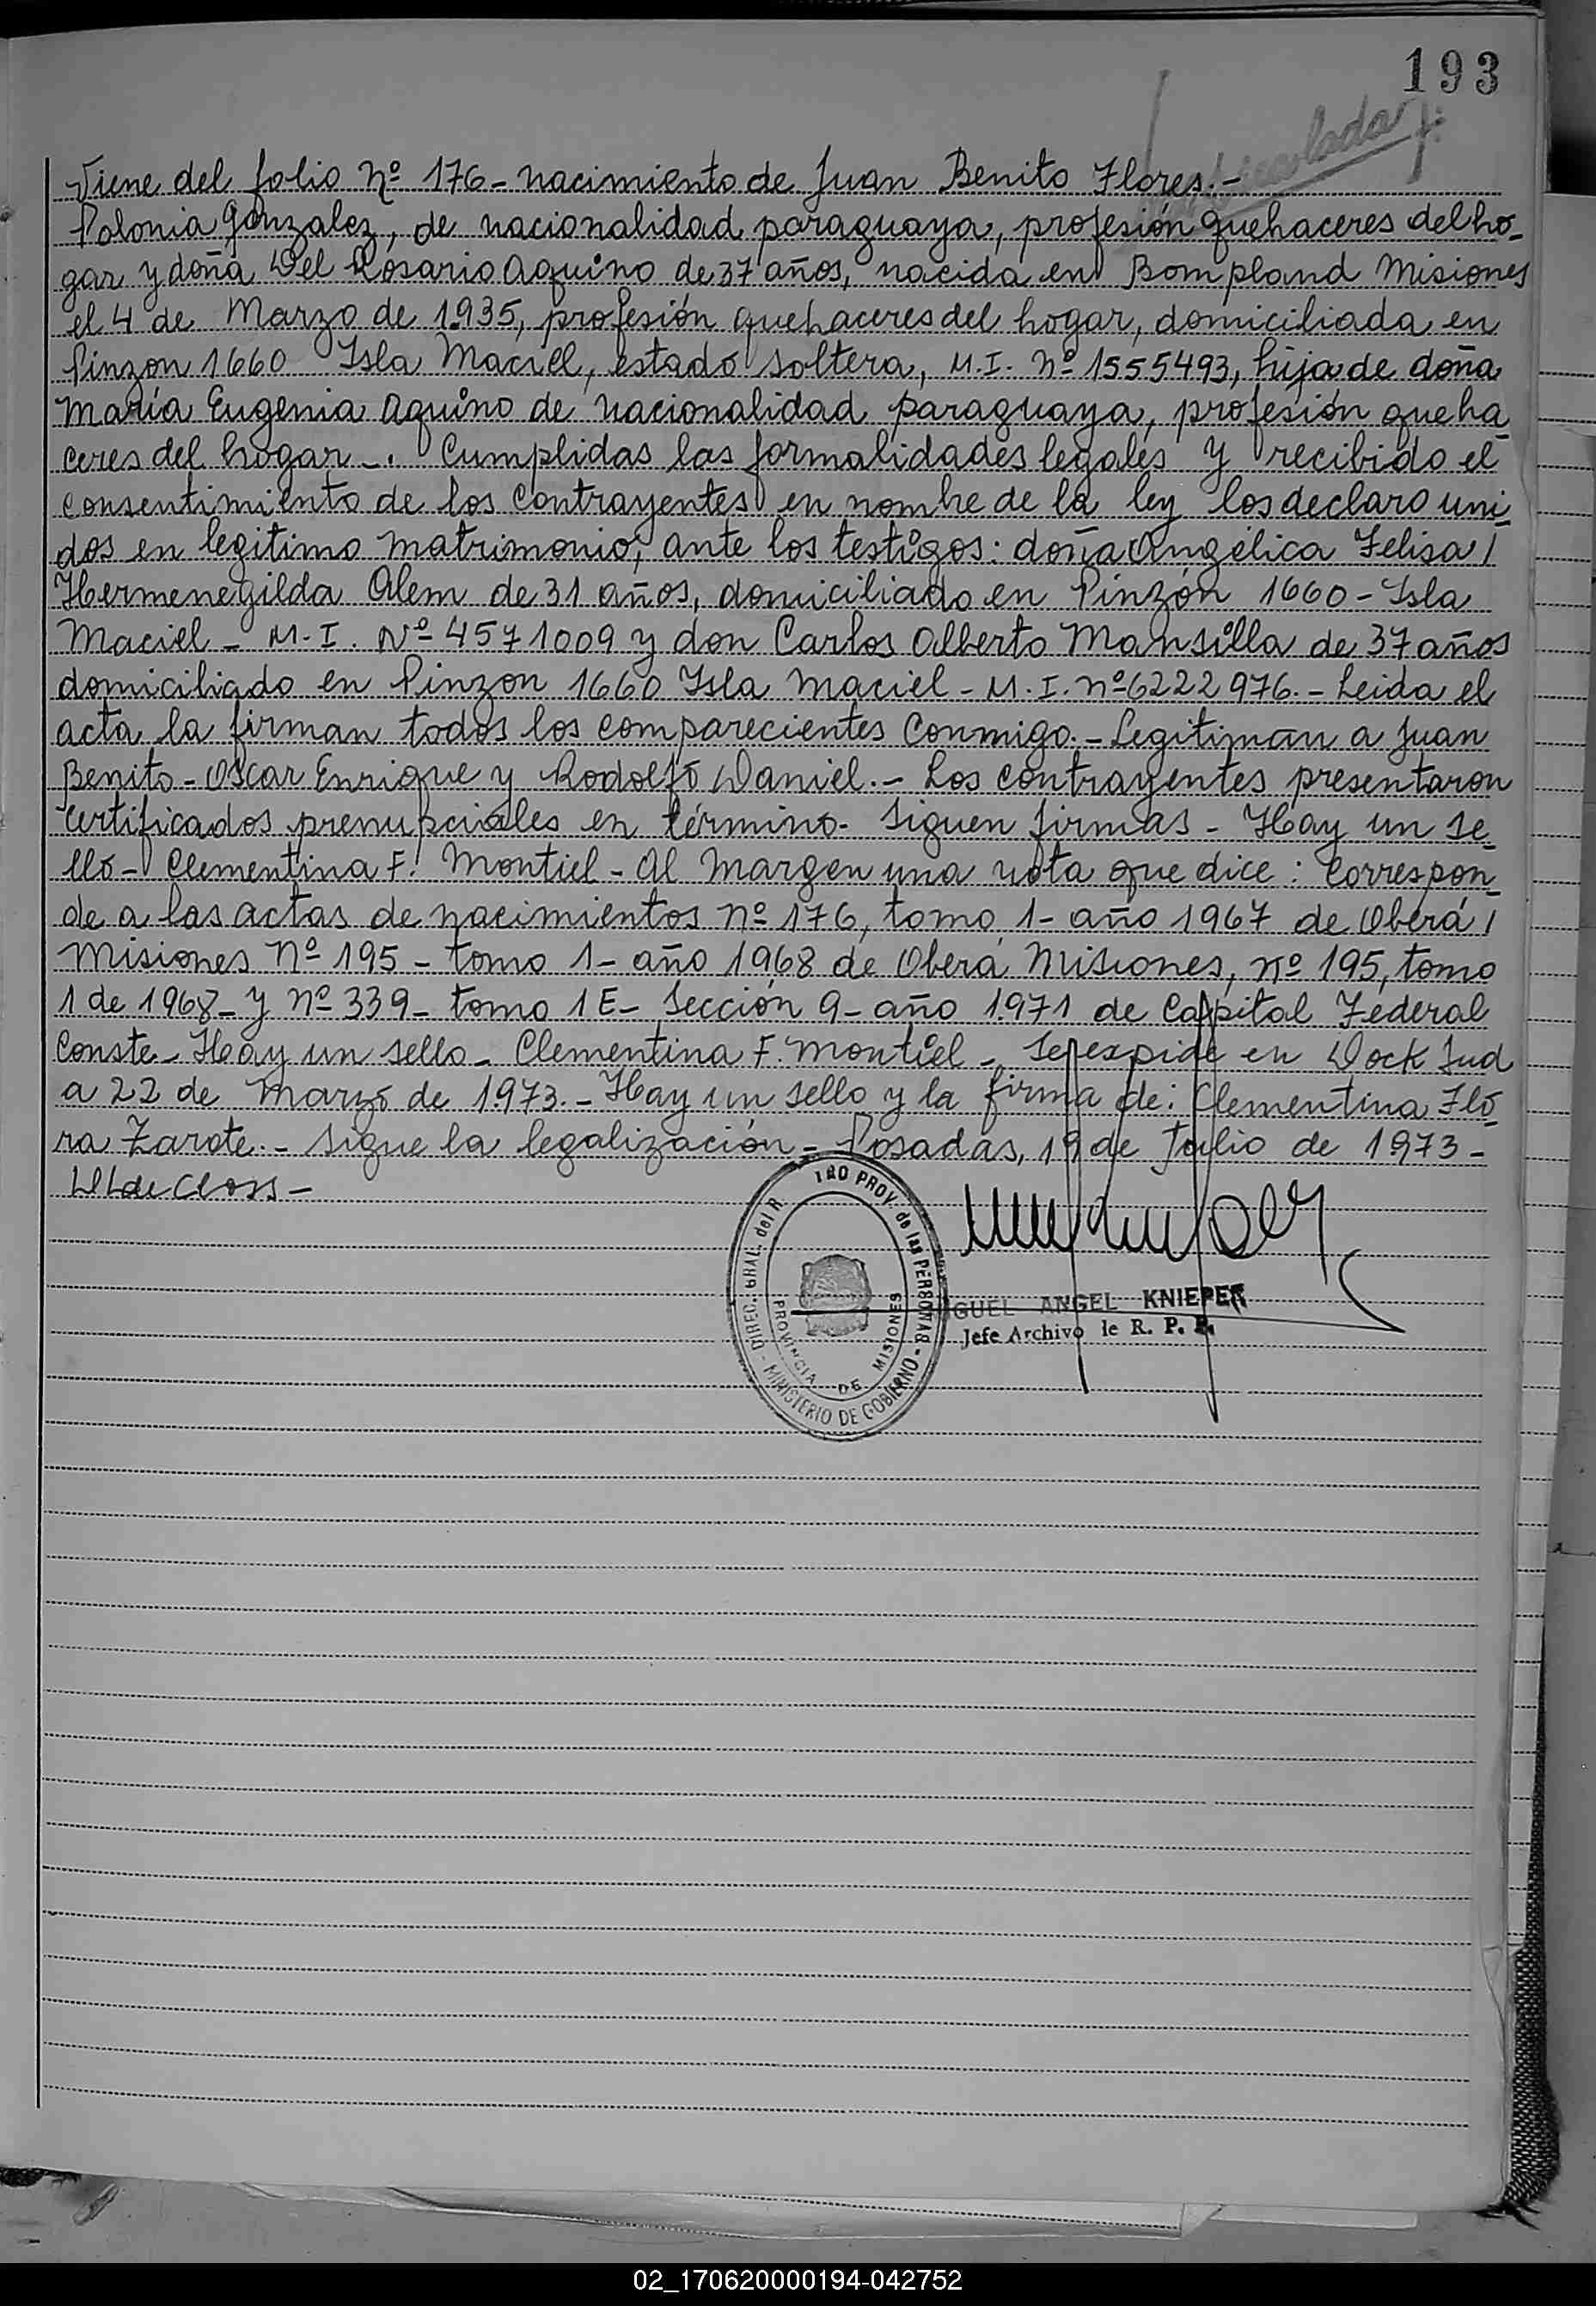 193
Viene del folio Nº 176 - nacimiento de Juan Benito Flores.-
Polonia Gonzalez, de nacionalidad paraguaya, profesión quehaceres del ho-
gar y doña Del Rosario Aquino de 37 años, nacida en Bompland Misiones
el 4 de Marzo de 1.935, profesión quehaceres del hogar, domiciliada en
Pinzón 1660 Isla Maciel, estado soltera, M.I. Nº 1555493, hija de doña
María Eugenia Aquino de nacionalidad paraguaya, profesión queha
ceres del hogar -. Cumplidas las formalidades legales y recibido el
consentimiento de los contrayentes en nombre de la ley los declaro uni-
dos en legitimo matrimonio, ante los testigos: doña Angélica Felisa /
Hermenegilda Alem de 31 años, domiciliado en Pinzón 1660 - Isla
Maciel - M.I. Nº 4571009 y don Carlos Alberto Mansilla de 37 años
domiciliado en Pinzon 1660 Isla Maciel - M.I. nº 6222976. - Leida el
acta la firman todos los comparecientes conmigo. - Legitiman a Juan
Benito - Oscar Enrique y Rodolfo Daniel. - Los contrayentes presentaron
certificados prenupciales en término - Siguen firmas - Hay un se-
llo - Clementina F. Montiel - Al margen una nota que dice: Correspon-
de a las actas de nacimientos nº 176, tomo 1 - año 1967 de Oberá /
Misiones Nº 195 - tomo 1 - año 1968 de Oberá Misiones, nº 195, tomo
1 de 1968 - y nº 339 - tomo 1 E - Sección 9 - año 1.971 de Capital Federal
Conste - Hay un sello - Clementina F. Montiel - Se expide en Dock Sud
a 22 de Marzo de 1.973. - Hay un sello y la firma de: Clementina Flo
ra Zarate. - Sigue la legalización - Posadas, 19 de Julio de 1973 -
DIREC. GRAL. del R. PROV. de las PERSONAS - MINISTERIO DE GOBIERNO -
PROVINCIA DE MISIONES
GUEL ANGEL KNIEPER
Jefe Archivo de R. P. P.
02_170620000194-042752